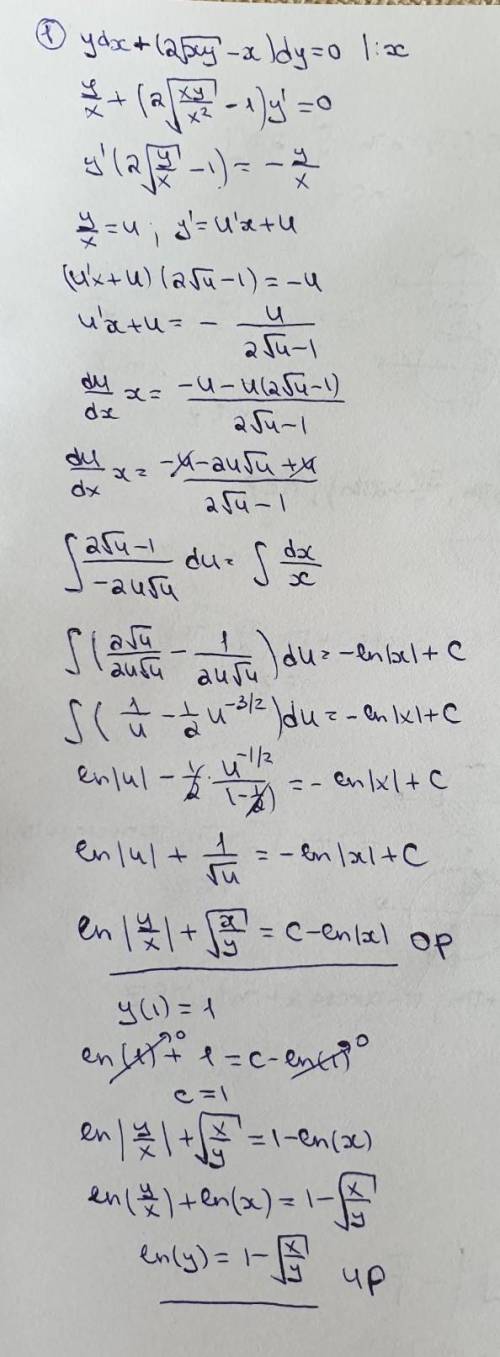 ① ydx + (2√xy - x)dy = 0 |:x
y/x + (2√(xy/x²) - 1)y' = 0
y'(2√(y/x) - 1) = - y/x
y/x = u ; y' = u'x + u
(u'x + u)(2√u - 1) = -u
u'x + u = - u/(2√u - 1)
du/dx x = (-u - u(2√u - 1))/(2√u - 1)
du/dx x = (-u - 2u√u + u)/(2√u - 1)
∫ (2√u - 1)/(-2u√u) du = ∫ dx/x
∫ (2√u/(2u√u) - 1/(2u√u)) du = -ln|x| + C
∫ (1/u - 1/2 u^(-3/2)) du = -ln|x| + C
ln|u| - 1/2 · u^(-1/2)/(-1/2) = - ln|x| + C
ln|u| + 1/√u = -ln|x| + C
ln|y/x| + √(x/y) = C - ln|x| OP
y(1) = 1
ln(1)→0 + 1 = C - ln(1)→0
C = 1
ln|y/x| + √(x/y) = 1 - ln(x)
ln(y/x) + ln(x) = 1 - √(x/y)
ln(y) = 1 - √(x/y) ЧP